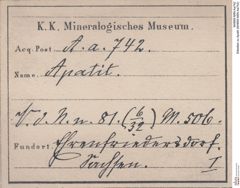 K. K. Mineralogisches Museum.
Acq. Post A. a. 742.
Name. Apatit.
V. d. N. n. 81. (6/32) M. 506.
Fundort: Ehrenfriedersdorf.
Sachsen. I